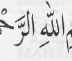 مِ اللهِ الرَّحْ